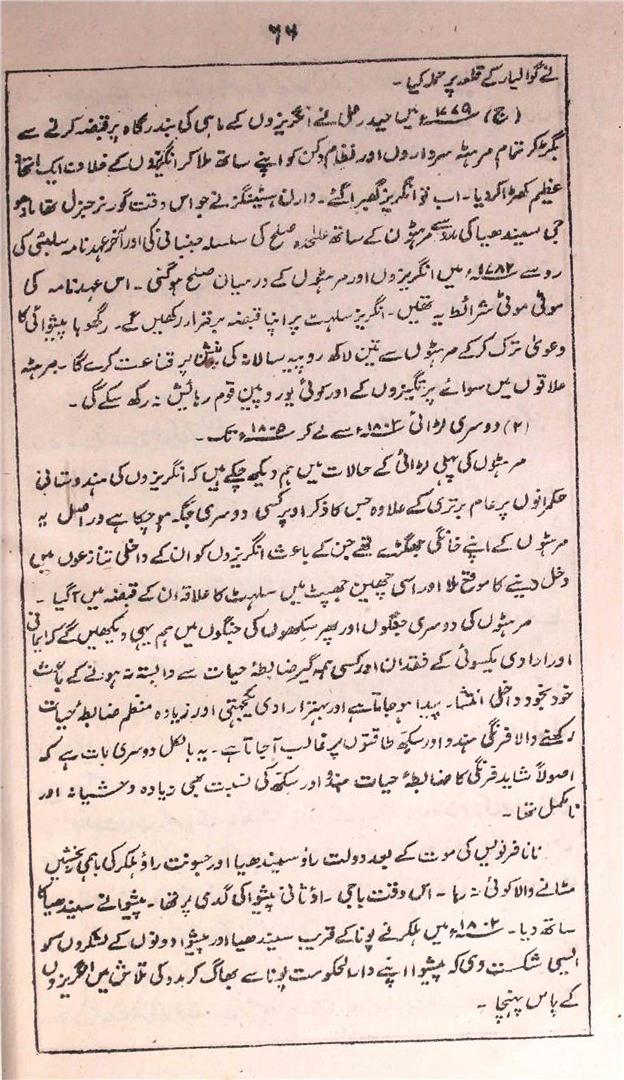 ۶۴
نے گوالیار کے قلعہ پر حملہ کیا ۔
(ج) ۱۷۷۹ء میں حیدر علی نے انگریزوں کے ماہی کی بندرگاہ پر قبضہ کرنے سے
بگڑ کر تمام مرہٹہ سرداروں اور نظام دکن کو اپنے ساتھ ملا کر انگریزوں کے خلاف ایک اتحاد
عظیم کھڑا کر دیا ۔ اب تو انگریز گھبرا گئے ۔ وارن ہسٹینگز نے جو اس وقت گورنر جنرل تھا مادھو
جی سیندھیا کی مدد سے مرہٹوں کے ساتھ علٰحدہ صلح کی سلسلہ جنبانی کی اور آخر عہد نامہ سلبئی کی
رو سے ۱۷۸۲ء میں انگریزوں اور مرہٹوں کے درمیان صلح ہو گئی ۔ اس عہد نامہ کی
موٹی موٹی شرائط یہ تھیں ۔ انگریز سلہٹ پر اپنا قبضہ برقرار رکھیں گے ۔ رگھوبا پیشوائی کا
دعویٰ ترک کر کے مرہٹوں سے تین لاکھ روپیہ سالانہ کی پنشن پر قناعت کرے گا ۔ مرہٹہ
علاقوں میں سوائے پرتگیزوں کے اور کوئی یوروپین قوم رہائش نہ رکھ سکے گی ۔
(۲) دوسری لڑائی ۱۸۰۲ء سے لے کر ۱۸۰۵ء تک ۔
مرہٹوں کی پہلی لڑائی کے حالات میں ہم دیکھ چکے ہیں کہ انگریزوں کی ہندوستانی
حکمرانوں پر عام برتری کے علاوہ جس کا ذکر اوپر کسی دوسری جگہ ہو چکا ہے دراصل یہ
مرہٹوں کے اپنے خانگی جھگڑے تھے جن کے باعث انگریزوں کو ان کے داخلی تنازعوں میں
دخل دینے کا موقع ملا اور اسی چھین جھپٹ میں سلہٹ کا علاقہ ان کے قبضہ میں آ گیا ۔
مرہٹوں کی دوسری جنگوں اور پھر سکھوں کی جنگوں میں ہم یہی دیکھیں گے کہ ایمانی
اور ارادی یکسوئی کے فقدان اور کسی ہمہ گیر ضابطۂ حیات سے وابستہ نہ ہونے کے باعث
خود بخود داخلی انتشار پیدا ہو جاتا ہے اور بہتر ارادی یکجہتی اور زیادہ منظم ضابطۂ حیات
رکھنے والا فرنگی ہندو اور سکھ طاقتوں پر غالب آ جاتا ہے ۔ یہ بالکل دوسری بات ہے کہ
اصولاً شاید فرنگی کا ضابطۂ حیات ہندو اور سکھ کی نسبت بھی زیادہ وحشیانہ اور
نامکمل تھا ۔
نانا فرنویس کی موت کے بعد دولت راؤ سیندھیا اور جسونت راؤ ہلکر کی باہمی رنجشیں
مٹانے والا کوئی نہ رہا ۔ اس وقت باجی راؤ ثانی پیشوا کی گدی پر تھا ۔ پیشوا نے سیندھیا کا
ساتھ دیا ۔ ۱۸۰۲ء میں ہلکر نے پونا کے قریب سیندھیا اور پیشوا دونوں کے لشکروں کو
ایسی شکست دی کہ پیشوا اپنے دارالحکومت پونا سے بھاگ کر مدد کی تلاش میں انگریزوں
کے پاس پہنچا ۔